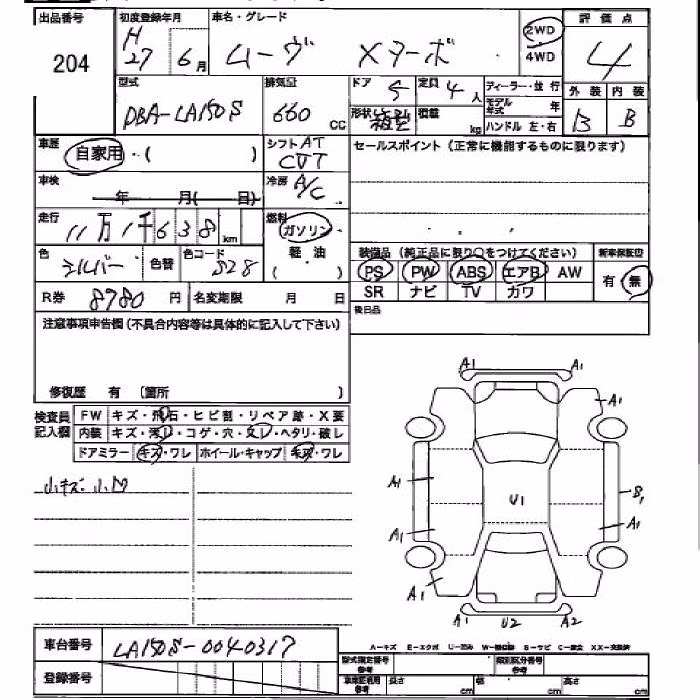 出品番号 初度登録年月 車名・グレード 評価点
204 H 27 6月 ムーヴ Xターボ 2WD 4WD 4
型式 排気量 ドア 5 定員 4人 ディーラー・並行 外装 内装
DBA-LA150S 660 CC 形状 箱型 積載 kg モデル年式 年 B B
ハンドル 左・右
車歴 自家用・( ) シフト AT CVT セールスポイント(正常に機能するものに限ります)
車検 年 月( 日) 冷房 A/C
走行 11万1千638 km 燃料 ガソリン 軽油 ( )
色 シルバー 色替 色コード S28 装備品(純正品に限り○をつけてください) 新車保証書
PS PW ABS エアB AW 有・無
R券 8780円 名変期限 月 日 SR ナビ TV カワ
注意事項申告欄(不具合内容等は具体的に記入して下さい) 後日品
修復歴 有 (箇所 )
検査員記入欄 FW キズ・飛石・ヒビ割・リペア跡・X要
内装 キズ・汚レ・コゲ・穴・スレ・ヘタリ・破レ
ドアミラー キズ・ワレ ホイール・キャップ キズ・ワレ
小キズ 小凹
A1 A1
A1 A1
A1 U1 B1
A1 A1
A1 A1 U2 A2
A-キズ E-エクボ U-凹み W-補修跡 S-サビ C-腐食 XX-交換済
車台番号 LA150S-0040317
型式指定番号 参考 類別区分番号 参考
登録番号 車庫証明用 参考 長さ cm 幅 cm 高さ cm